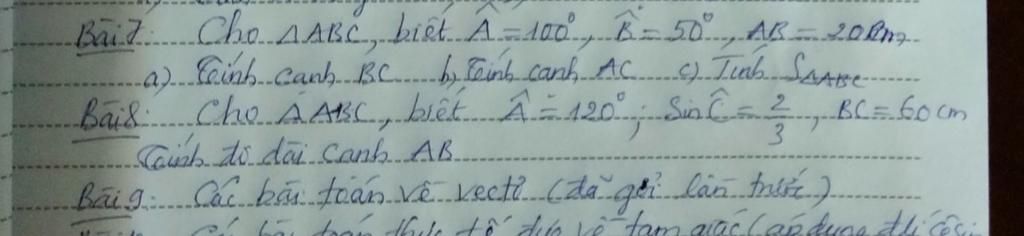 Bài 7: Cho ΔABC, biết Â = 100°, B̂ = 50°, AB = 20cm
a) Tính cạnh BC b, Tính cạnh AC c) Tính SΔABC
Bài 8: Cho ΔABC, biết Â = 120°; Sin Ĉ = 2/3, BC = 60cm
Tính độ dài cạnh AB
Bài 9: Các bài toán về vectơ (đã gửi lần trước)
bài toán thực tế tam giác (áp dụng